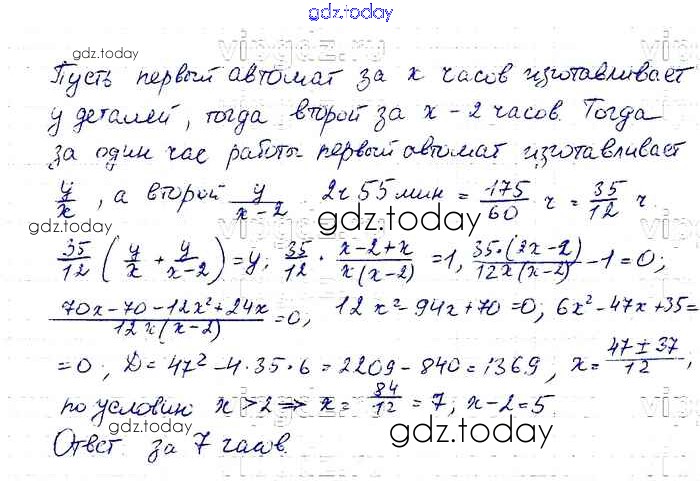 gdz.today
gdz.today vipgdz.ru
Пусть первый автомат за x часов изготавливает
y деталей, тогда второй за x - 2 часов. Тогда
за один час работы первый автомат изготавливает
y/x, а второй y/(x-2) 2ч 55 мин = 175/60 ч = 35/12 ч.
gdz.today gdz.today
35/12 (y/x + y/(x-2)) = y; 35/12 · (x-2+x)/(x(x-2)) = 1, 35·(2x-2)/(12x(x-2)) - 1 = 0;
gdz.today
(70x-70-12x²+24x)/(12x(x-2)) = 0; 12x²-94x+70=0; 6x²-47x+35=
=0, D=47²-4·35·6=2209-840=1369, x=(47±37)/12,
по условию x>2 ⇒ x = 84/12 = 7; x-2=5.
gdz.today gdz.today
Ответ за 7 часов.